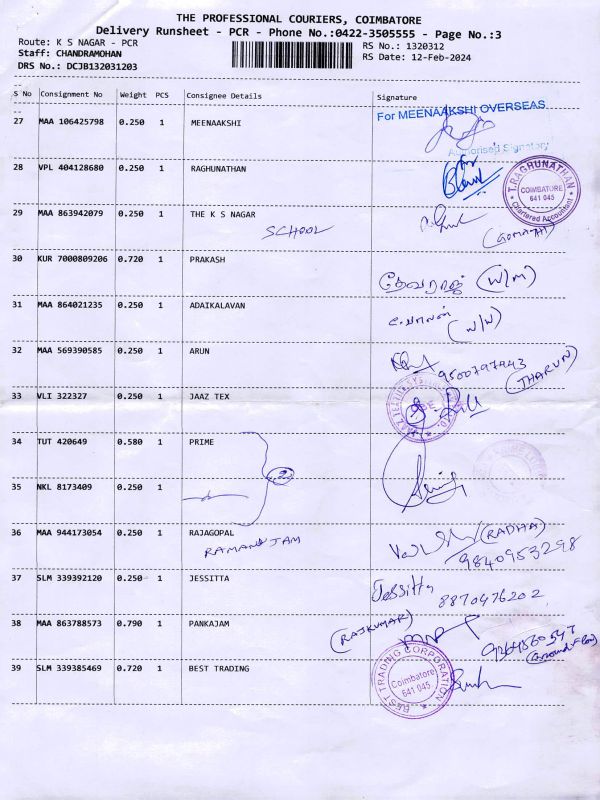 THE PROFESSIONAL COURIERS, COIMBATORE
Delivery Runsheet - PCR - Phone No.:0422-3505555 - Page No.:3
Route: K S NAGAR - PCR
RS No.: 1320312
Staff: CHANDRAMOHAN
RS Date: 12-Feb-2024
DRS No.: DCJB132031203
S No Consignment No Weight PCS Consignee Details Signature
For MEENAAKSHI OVERSEAS
27 MAA 106425798 0.250 1 MEENAAKSHI
Authorised Signatory
28 VPL 404128680 0.250 1 RAGHUNATHAN
for
T.RAGHUNATHAN
COIMBATORE
641 045
Chartered Accountant
29 MAA 863942079 0.250 1 THE K S NAGAR
SCHOOL
(GOMATHI)
30 KUR 7000809206 0.720 1 PRAKASH
தேவராஜ் (W/M)
31 MAA 864021235 0.250 1 ADAIKALAVAN
(W/W)
32 MAA 569390585 0.250 1 ARUN
9500797943
(THARUN)
33 VLI 322327 0.250 1 JAAZ TEX
34 TUT 420649 0.580 1 PRIME
2
35 NKL 8173409 0.250 1
36 MAA 944173054 0.250 1 RAJAGOPAL
RAMANUJAM
(RADHA)
9840953298
37 SLM 339392120 0.250 1 JESSITTA
Jessitta 8870476202
38 MAA 863788573 0.790 1 PANKAJAM
(RAJKUMAR)
(Ground Floor)
39 SLM 339385469 0.720 1 BEST TRADING
BEST TRADING CORPORATION
Coimbatore
641 045